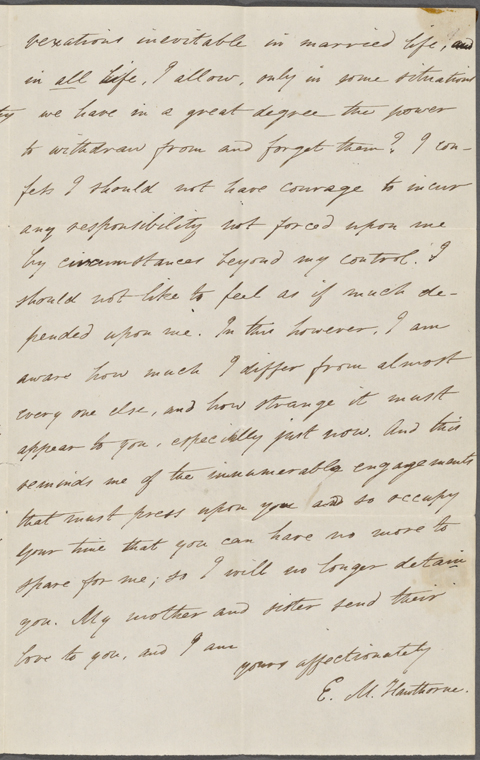 vexations inevitable in married life, and
in all life, I allow, only in some situations
we have in a great degree the power
to withdraw from and forget them? I con-
fess I should not have courage to incur
any responsibility not forced upon me
by circumstances beyond my control. I
should not like to feel as if much de-
pended upon me. In this however, I am
aware how much I differ from almost
every one else, and how strange it must
appear to you, especially just now. And this
reminds me of the innumerable engagements
that must press upon you and so occupy
your time that you can have no more to
spare for me; so I will no longer detain
you. My mother and sister send their
love to you, and I am
yours affectionately
E. M. Hawthorne.